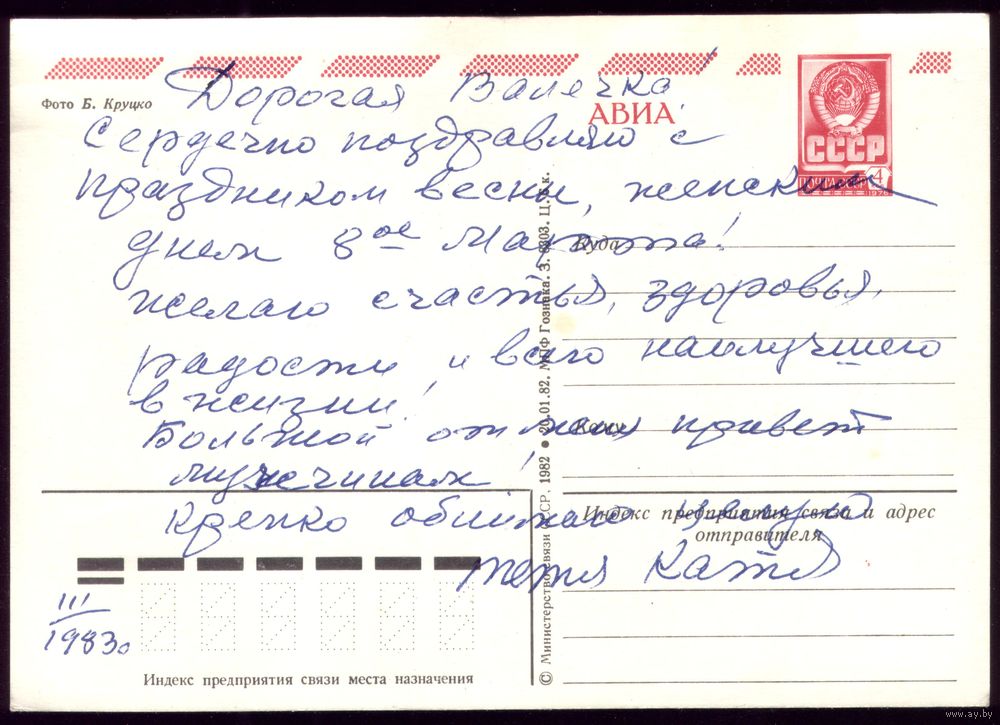 Фото Б. Круцко
АВИА
СССР
ПОЧТА
4
1978
Дорогая Валечка!
Сердечно поздравляю с
праздником весны, женским
днем 8ое Марта!
Желаю счастья, здоровья,
радости и всего наилучшего
в жизни!
Большой от меня привет
мужчинам!
Крепко обнимаю целую
тетя Катя
III
1983г
Куда
Кому
Индекс предприятия связи и адрес
отправителя
Индекс предприятия связи места назначения
© Министерство связи СССР. 1982 ● 20.01.82. МПФ Гознака. З. 6303. Ц. 5 к.
www.ay.by